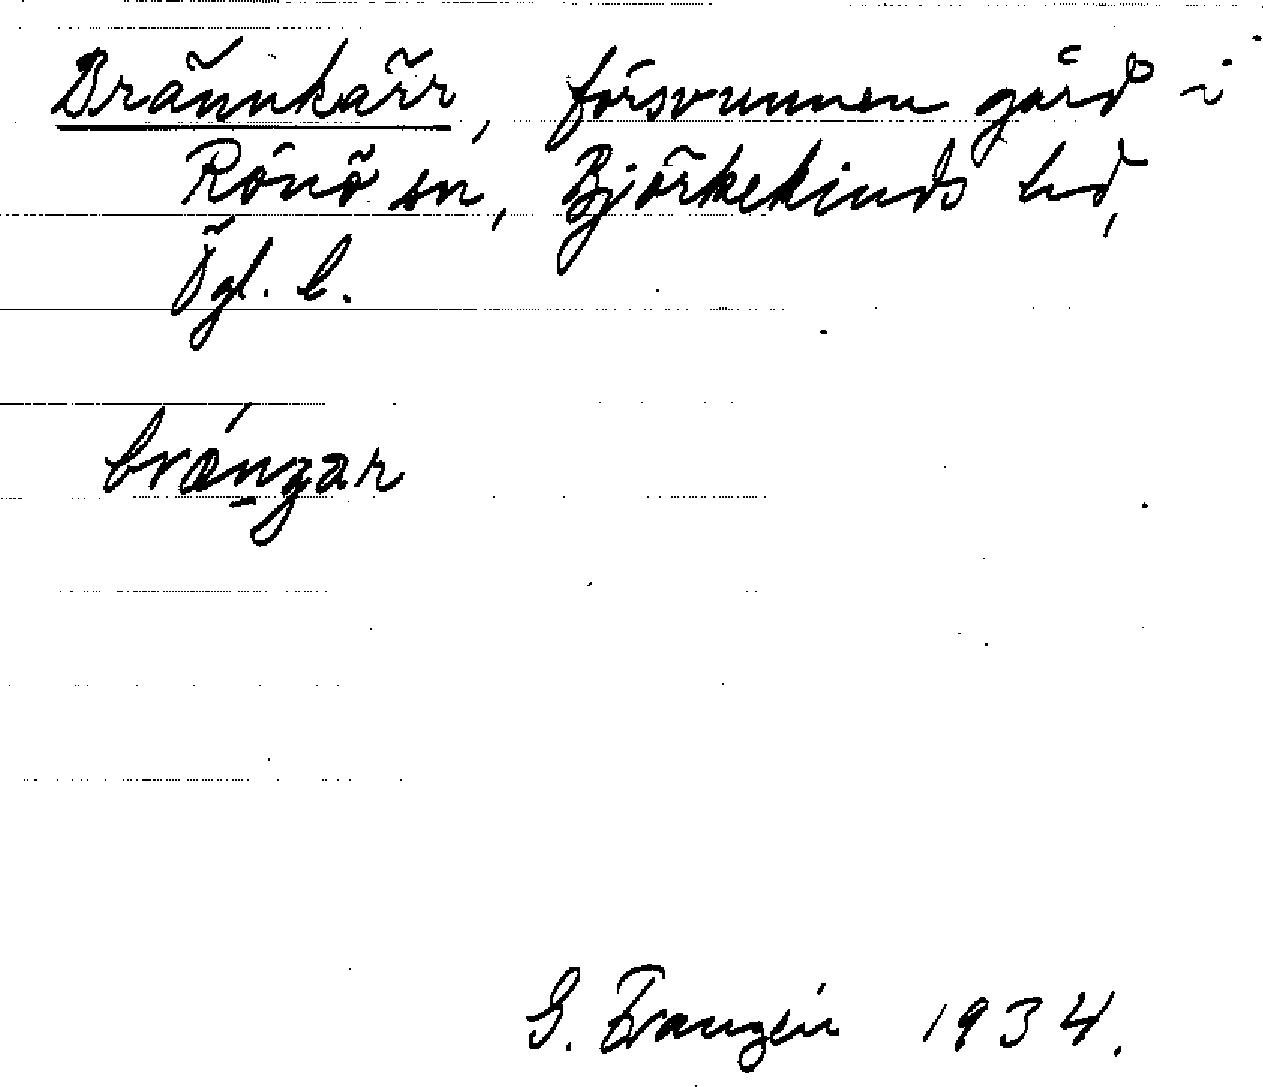 Brännkärr, försvunnen gård i
Rönö sn, Björkekinds hd,
Ögl. l.
brænʒar
G. Franzén 1934.